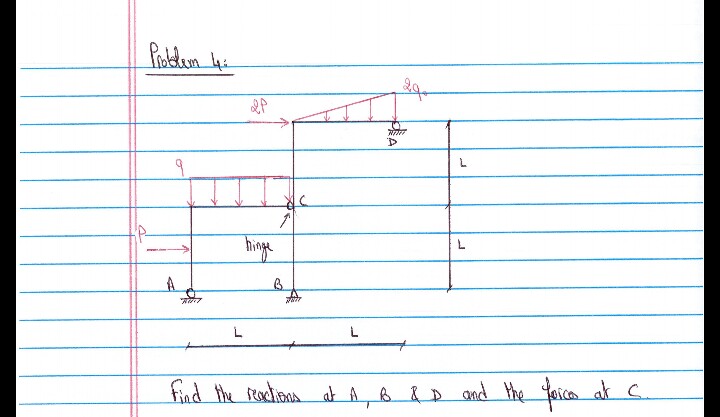 Problem 4:
2P
2q₀
D
L
q
C
P
hinge
L
A
B
L
L
Find the reactions at A, B & D and the forces at C.